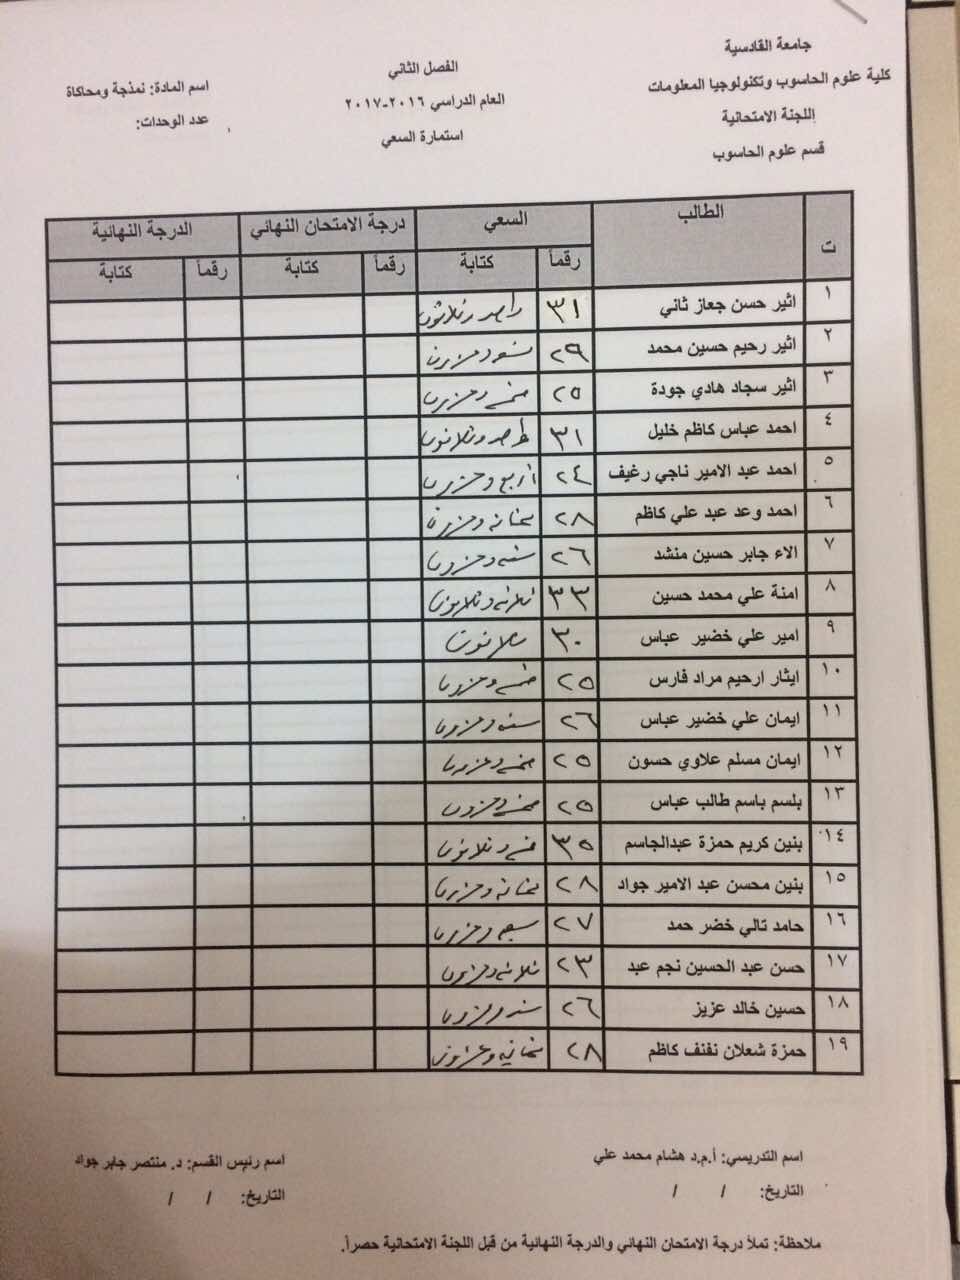 جامعة القادسية
كلية علوم الحاسوب وتكنولوجيا المعلومات
اللجنة الامتحانية
قسم علوم الحاسوب
الفصل الثاني
العام الدراسي ٢٠١٦-٢٠١٧
استمارة السعي
اسم المادة: نمذجة ومحاكاة
عدد الوحدات:
ت الطالب السعي درجة الامتحان النهائي الدرجة النهائية
رقماً كتابة رقماً كتابة رقماً كتابة
١ اثير حسن جعاز ثاني ٣١ واحد وثلاثون
٢ اثير رحيم حسين محمد ٢٩ تسعة وعشرون
٣ اثير سجاد هادي جودة ٢٥ خمسة وعشرون
٤ احمد عباس كاظم خليل ٣١ واحد وثلاثون
٥ احمد عبد الامير ناجي رغيف ٢٤ اربع وعشرون
٦ احمد وعد عبد علي كاظم ٢٨ ثمانية وعشرون
٧ الاء جابر حسين منشد ٢٦ ستة وعشرون
٨ امنة علي محمد حسين ٣٣ ثلاثة وثلاثون
٩ امير علي خضير عباس ٣٠ ثلاثون
١٠ ايثار ارحيم مراد فارس ٢٥ خمسة وعشرون
١١ ايمان علي خضير عباس ٢٦ ستة وعشرون
١٢ ايمان مسلم علاوي حسون ٢٥ خمسة وعشرون
١٣ بلسم باسم طالب عباس ٢٥ خمسة وعشرون
١٤ بنين كريم حمزة عبدالجاسم ٣٥ خمسة وثلاثون
١٥ بنين محسن عبد الامير جواد ٢٨ ثمانية وعشرون
١٦ حامد تالي خضر حمد ٢٧ سبعة وعشرون
١٧ حسن عبد الحسين نجم عبد ٢٣ ثلاثة وعشرون
١٨ حسين خالد عزيز ٢٦ ستة وعشرون
١٩ حمزة شعلان نفنف كاظم ٢٨ ثمانية وعشرون
اسم التدريسي: أ.م.د هشام محمد علي
التاريخ: / /
اسم رئيس القسم: د. منتصر جابر جواد
التاريخ: / /
ملاحظة: تملأ درجة الامتحان النهائي والدرجة النهائية من قبل اللجنة الامتحانية حصراً.